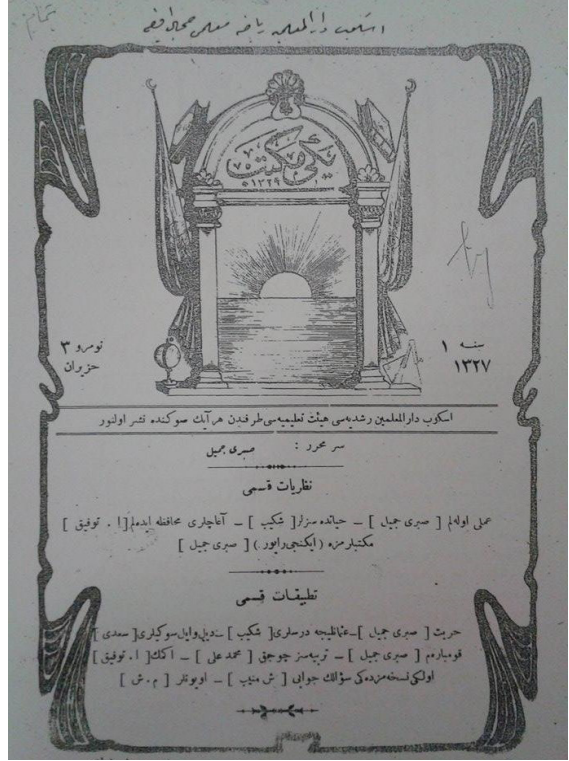 تمام
اسكوب دار المعلمين رياضه معلمى
يڭى مكتب
١٣٢٩
سنه ١
١٣٢٧
نومرو ٣
حزيران
اسكوب دار المعلمين رشديه‌سى هيئت تعليميه‌سى طرفندن هر آيك صوكنده نشر اولنور
سر محرر : صبرى جميل
نظريات قسمى
عملى اوله‌لم [ صبرى جميل ] – حياتده سزلر [ شكيب ] – آغاچلرى محافظه ايده‌لم [ ا . توفيق ]
مكتبلرمزه ( ايكنجى راپور ) [ صبرى جميل ]
تطبيقات قسمى
حريت [ صبرى جميل ] – عثمانليجه درسلرى [ شكيب ] – ديل وايل سوكيلرى [ سعدى ]
قومبارەم [ صبرى جميل ] – تربيه‌سز چوجق [ محمد على ] – اكمك [ ا . توفيق ]
اولكى نسخه‌مزده‌كى سؤالك جوابى [ ش منيب ] – اويونلر [ م . ش ]